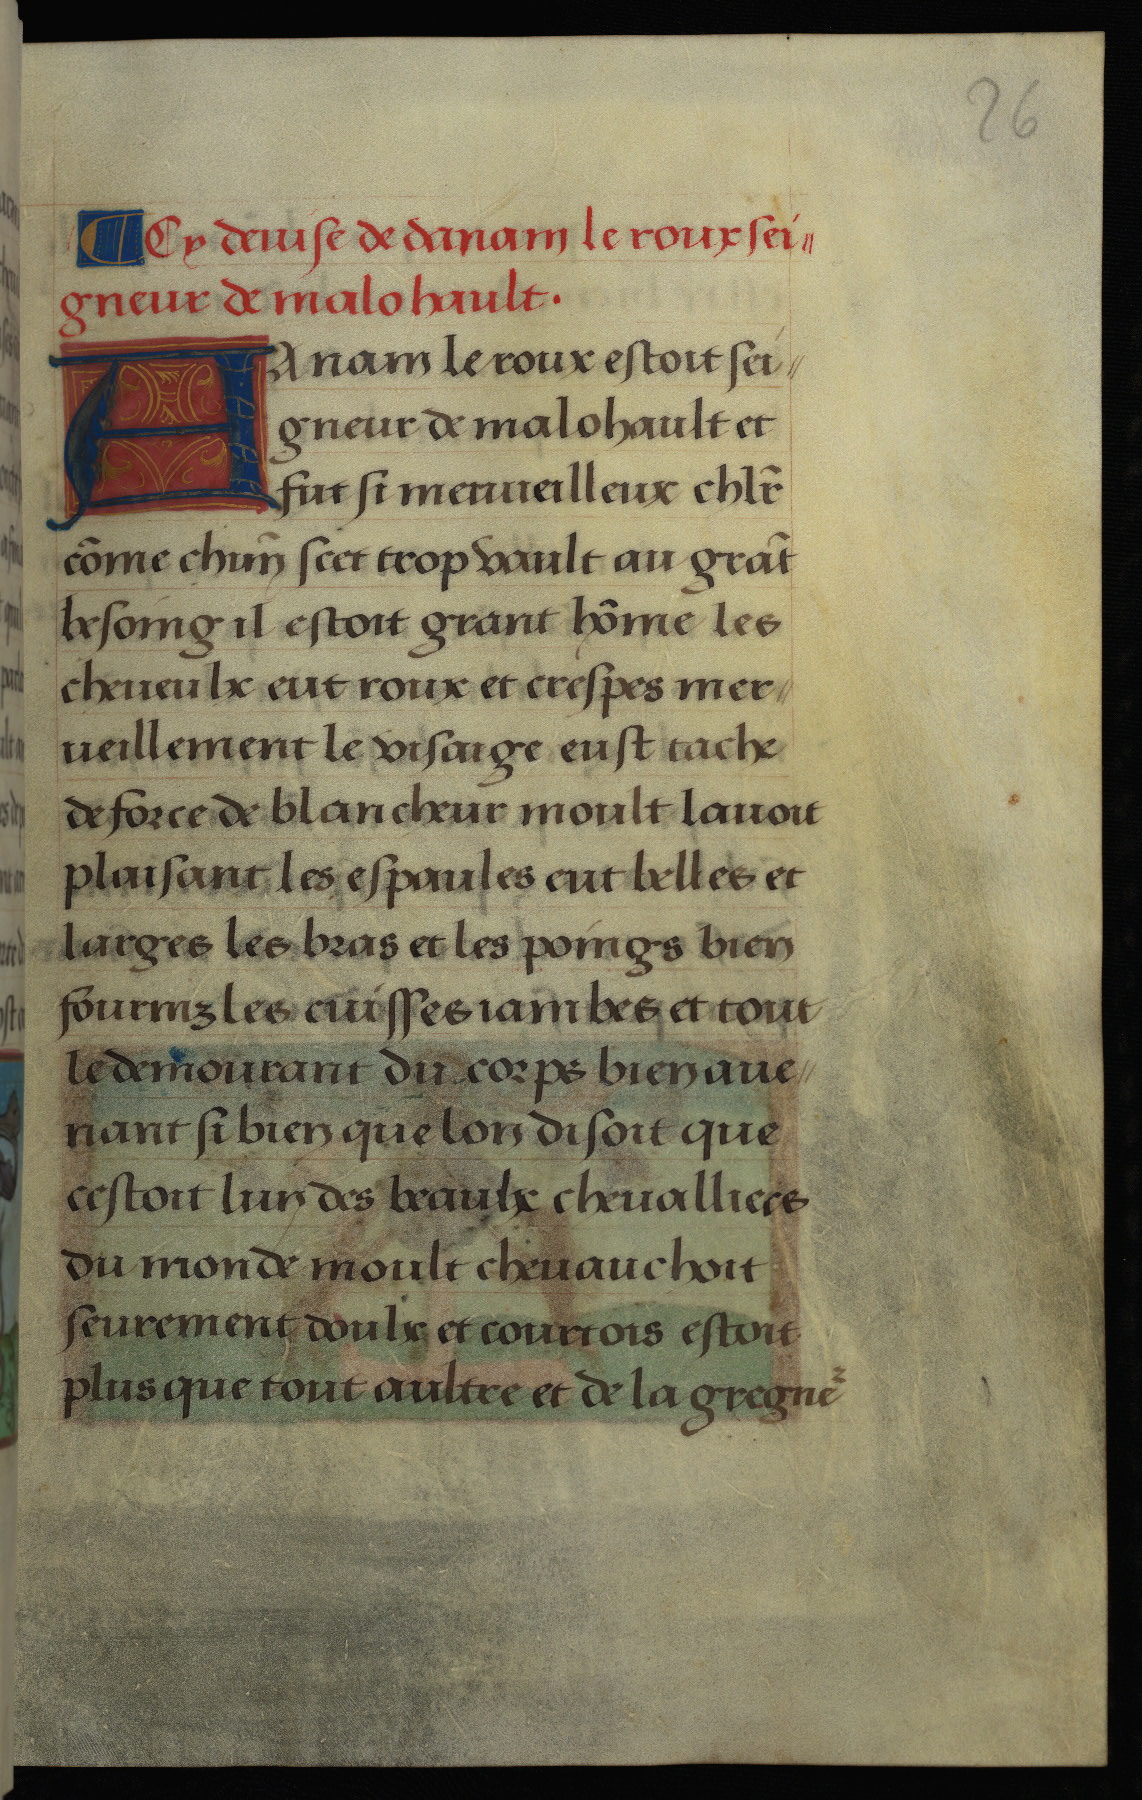 26
Cy deuise de danam le roux sei〃
gneur de malohault.
A Anam le roux estoit sei〃
gneur de malohault et
fut si merueilleux chlr̃
cõme chun̄ scet trop vault au grãt
besoing il estoit grant hõme les
cheueulx eut roux et crespes mer〃
ueillement le visaige eust tache
de force de blancheur moult lauoit
plaisant les espaules eut belles et
larges les bras et les poings bien
fourniz les cuisses iambes et tout
le demourant du corps bien aue〃
nant si bien que lon disoit que
cestoit lun des beaulx cheualliers
du monde moult cheuauchoit
seurement doulx et courtois estoit
plus que tout aultre et de la gregneᷣ